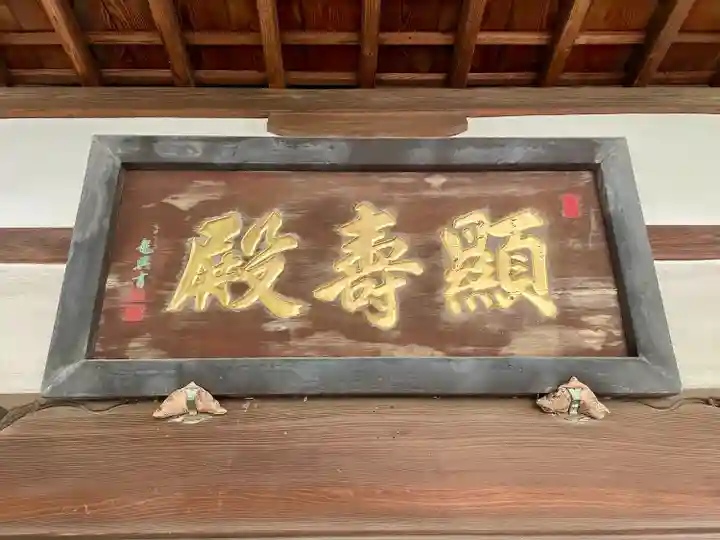 顯壽殿